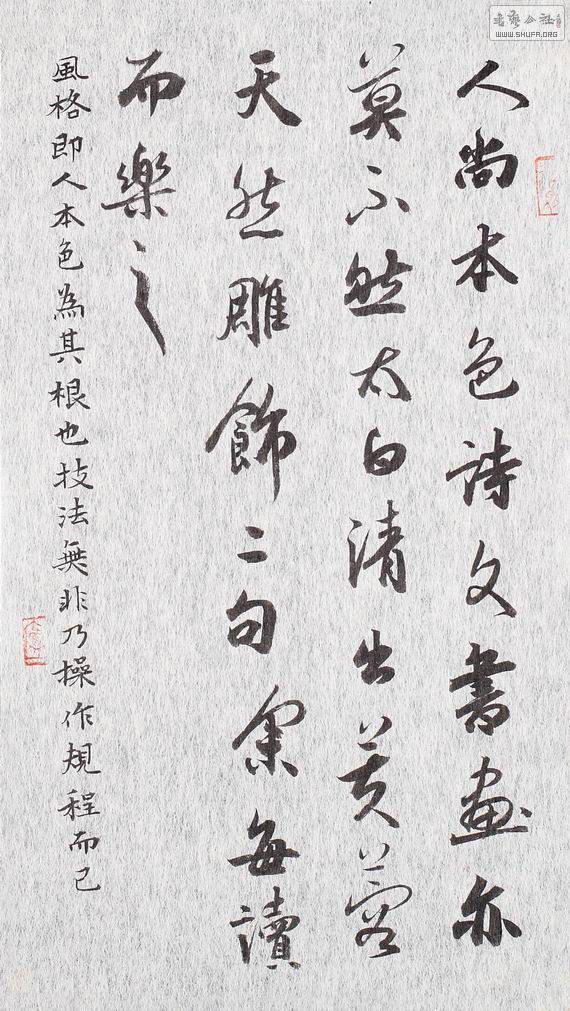 人尚本色詩文書畫亦
莫不然太白清出芙蓉
天然雕飾二句余每讀
而樂之
風格即人本色為其根也技法無非乃操作規程而已
WWW.SHUFA.ORG